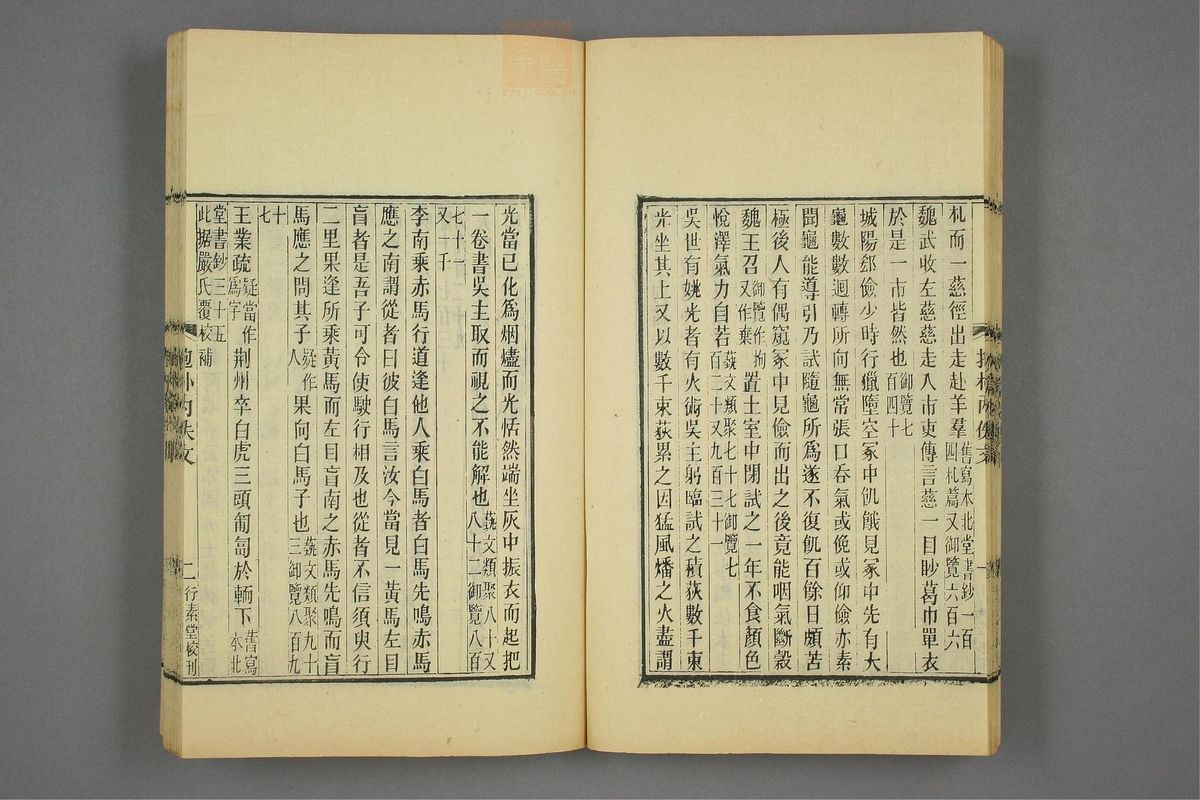 札而一慈徑出走赴羊羣舊寫本北堂書鈔一百四札篇又御覽六百六
魏武收左慈慈走入市吏傳言慈一目眇葛巾單衣
於是一市皆然也御覽七百四十
城陽郄儉少時行獵墮空冢中飢餓見冢中先有大
龜數數迴轉所向無常張口吞氣或俛或仰儉亦素
聞龜能導引乃試隨龜所爲遂不復飢百餘日頗苦
極後人有偶窺冢中見儉而出之後竟能咽氣斷穀
魏王召御覽作拘又作棄置土室中閉試之一年不食顏色
悅澤氣力自若藝文類聚七十七御覽七百二十又九百三十一
吳世有姚光者有火術吳主躬臨試之積荻數千束
光坐其上又以數千束荻累之因猛風燔之火盡謂
抱朴內佚文
一
光當已化爲烟燼而光恬然端坐灰中振衣而起把
一卷書吳主取而視之不能解也藝文類聚八十又八十二御覽八百
七十一又一千
李南乘赤馬行道逢他人乘白馬者白馬先鳴赤馬
應之南謂從者曰彼白馬言汝今當見一黃馬左目
盲者是吾子可令使駛行相及也從者不信須臾行
二里果逢所乘黃馬而左目盲南之赤馬先鳴而盲
馬應之問其子疑作人果向白馬子也藝文類聚九十三御覽八百九
十七
王業疏疑當作爲字荆州卒白虎三頭匍匐於輀下舊寫本北
堂書鈔三十五此據嚴氏覆校補
抱朴內佚文
二
行素堂校刊